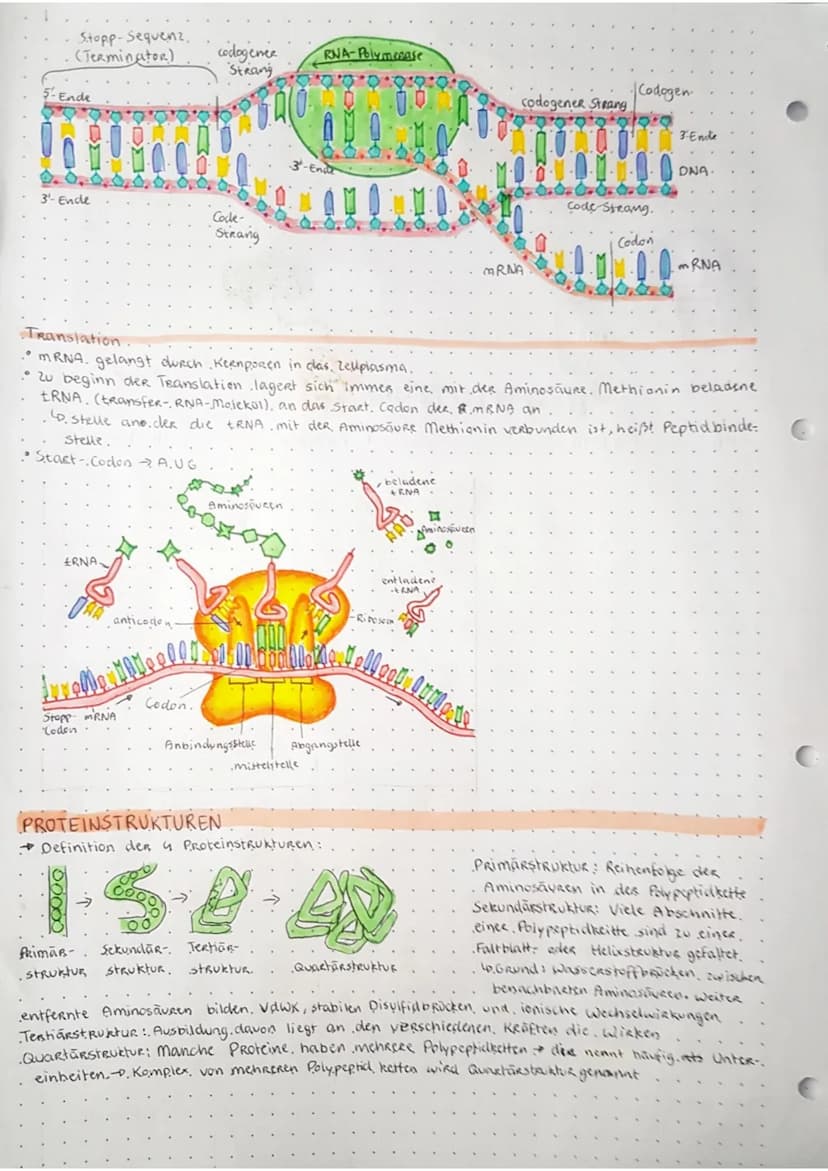 Stopp-Sequenz
(Terminator)
codogener
Strang
RNA-Polymerase
5'-Ende
codogener Strang
Codogen
3'-Ende
3'-Ende
DNA
3'-Ende
Code-
Strang
Code-Strang
Codon
mRNA
mRNA
Translation
• mRNA gelangt durch Kernporen in das Zellplasma.
• Zu beginn der Translation lagert sich immer eine mit der Aminosäure Methionin beladene
tRNA (transfer-RNA-Molekül) an das Start Codon der mRNA an
↳ Stelle an der die tRNA mit der Aminosäure Methionin verbunden ist, heißt Peptidbinde-
stelle.
• Start-Codon → AUG
Aminosäuren
beladene
tRNA
Aminosäuren
tRNA
entladene
tRNA
anticodon
Ribosom
Codon
Stopp mRNA
Codon
Anbindungsstelle
Abgangstelle
mittelstelle
PROTEINSTRUKTUREN
→ Definition der 4 Proteinstrukturen:
Primär-
struktur
Sekundär-
struktur
Tertiär-
struktur
Quartärstruktur
Primärstruktur: Reihenfolge der
Aminosäuren in der Polypeptidkette
Sekundärstruktur: Viele Abschnitte
einer Polypeptidkette sind zu einer
Faltblatt- oder Helixstruktur gefaltet
↳ Grund: Wasserstoffbrücken zwischen
benachbarten Aminosäuren. Weiter
entfernte Aminosäuren bilden VdWK, stabilen Disulfidbrücken und ionische Wechselwirkungen
Tertiärstruktur: Ausbildung davon liegt an den verschiedenen Kräften die wirken
Quartärstruktur: Manche Proteine haben mehrere Polypeptidketten → die nennt häufig Unter-
einheiten → Komplex von mehreren Polypeptid ketten wird Quartärstruktur genannt